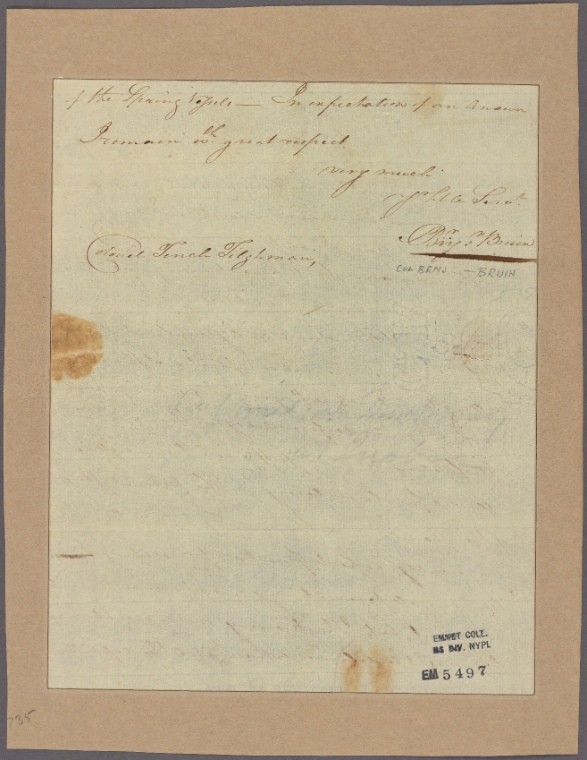 of the Spring Vessels — In expectation of an Answer
I remain wth great respect
very much
Yr Hble Servt
Colonel Tench Tilghman,
COL BENJ — BRUIN
EMMET COLL.
MS DIV. NYPL
EM 5497
735